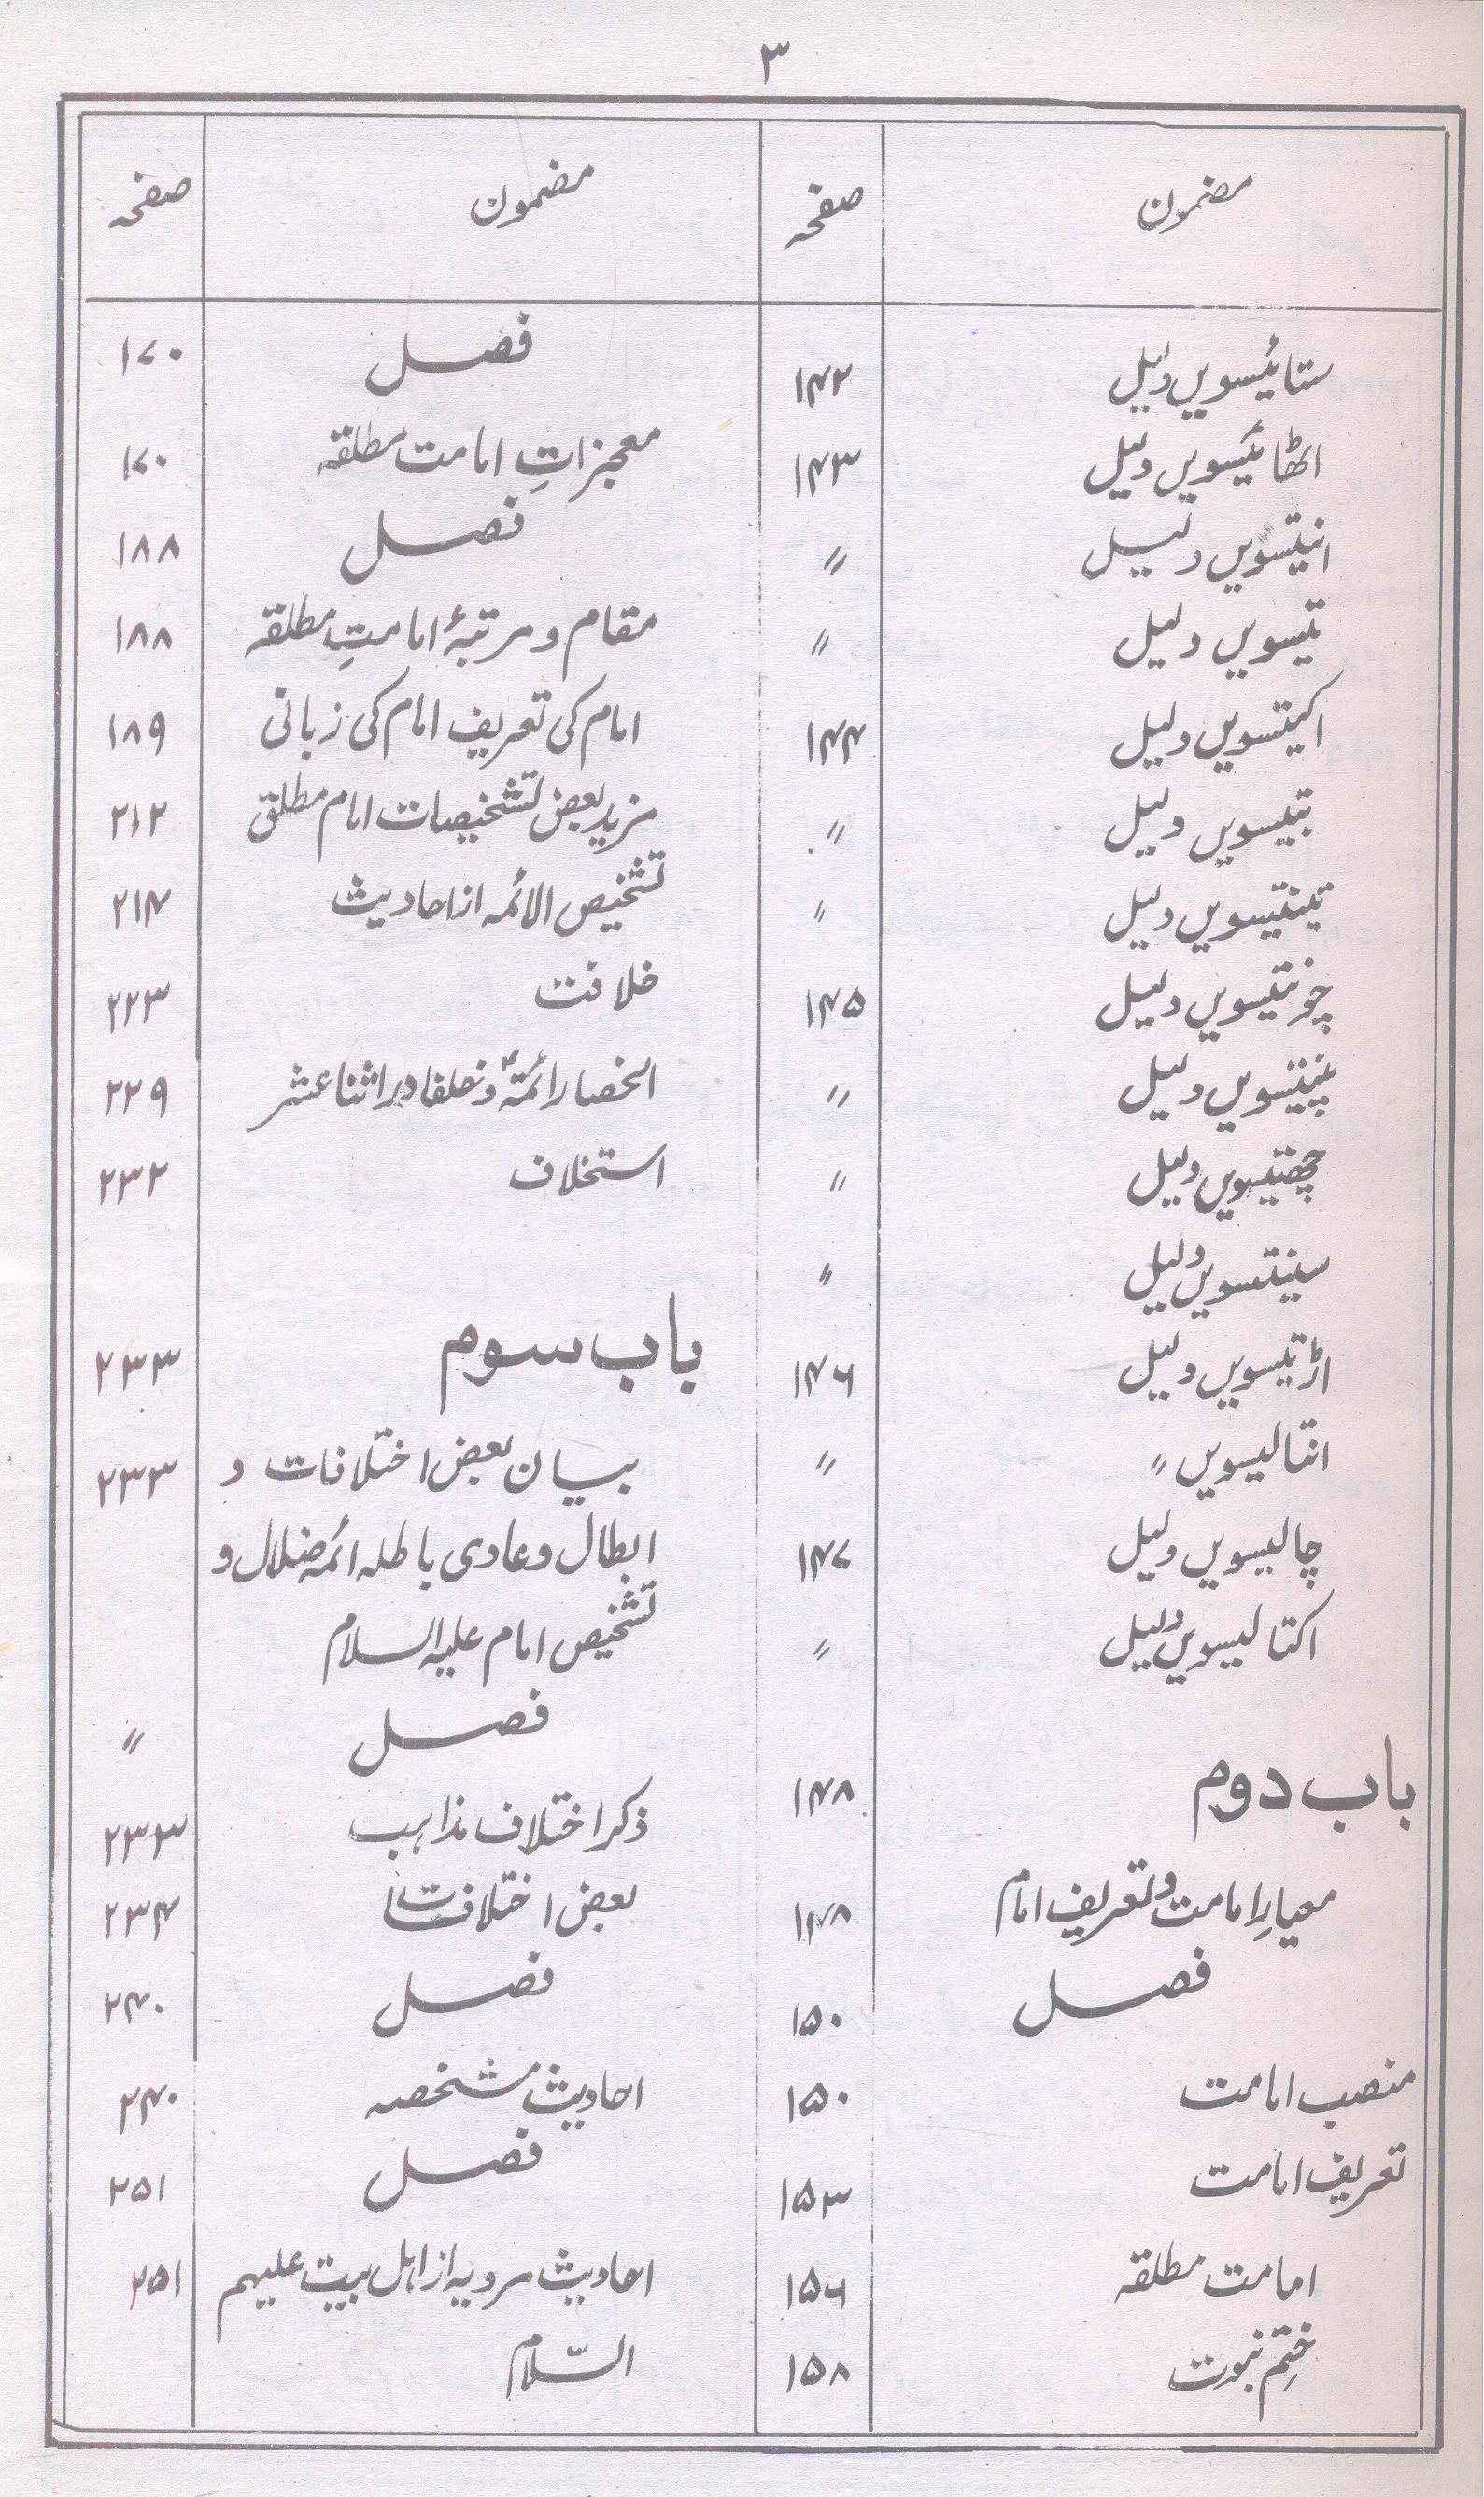 ۳
مضمون صفحہ
ستائیسویں دلیل ۱۴۲
اٹھائیسویں دلیل ۱۴۳
انتیسویں دلیل 〃
تیسویں دلیل 〃
اکیتسویں دلیل ۱۴۴
بتیسویں دلیل 〃
تینتیسویں دلیل 〃
چونتیسویں دلیل ۱۴۵
پینتیسویں دلیل 〃
چھتیسویں دلیل 〃
سینتیسویں دلیل 〃
اڑتیسویں دلیل ۱۴۶
انتالیسویں 〃 〃
چالیسویں دلیل ۱۴۷
اکتالیسویں دلیل 〃
باب دوم ۱۴۸
معیارِ امامت و تعریف امام ۱۴۸
فصل ۱۵۰
منصب امامت ۱۵۰
تعریف امامت ۱۵۳
امامت مطلقہ ۱۵۶
ختمِ نبوت ۱۵۸
مضمون صفحہ
فصل ۱۷۰
معجزاتِ امامت مطلقہ ۱۷۰
فصل ۱۸۸
مقام و مرتبۂ امامتِ مطلقہ ۱۸۸
امام کی تعریف امام کی زبانی ۱۸۹
مزید بعض تشخیصات امام مطلق ۲۱۲
تشخیص الائمہ از احادیث ۲۱۴
خلافت ۲۲۳
انحصار ائمہؑ و خلفا در اثنا عشر ۲۲۹
استخلاف ۲۳۲
باب سوم ۲۳۳
بیان بعض اختلافات و ۲۳۳
ابطال دعاوی باطلہ ائمہ ضلال و
تشخیص امام علیہ السلام
فصل 〃
ذکر اختلاف مذاہب ۲۳۳
بعض اختلافات ۲۳۴
فصل ۲۴۰
احادیث مشخصہ ۲۴۰
فصل ۲۵۱
احادیث مرویہ از اہل بیت علیہم ۲۵۱
السّلام